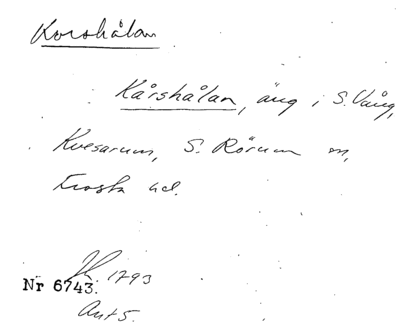 Korshålan
Kårshålan, äng i S. Vång,
Kvesarum, S. Rörum sn,
Frosta hd.
1793
Nr 6743.
Ant 5.